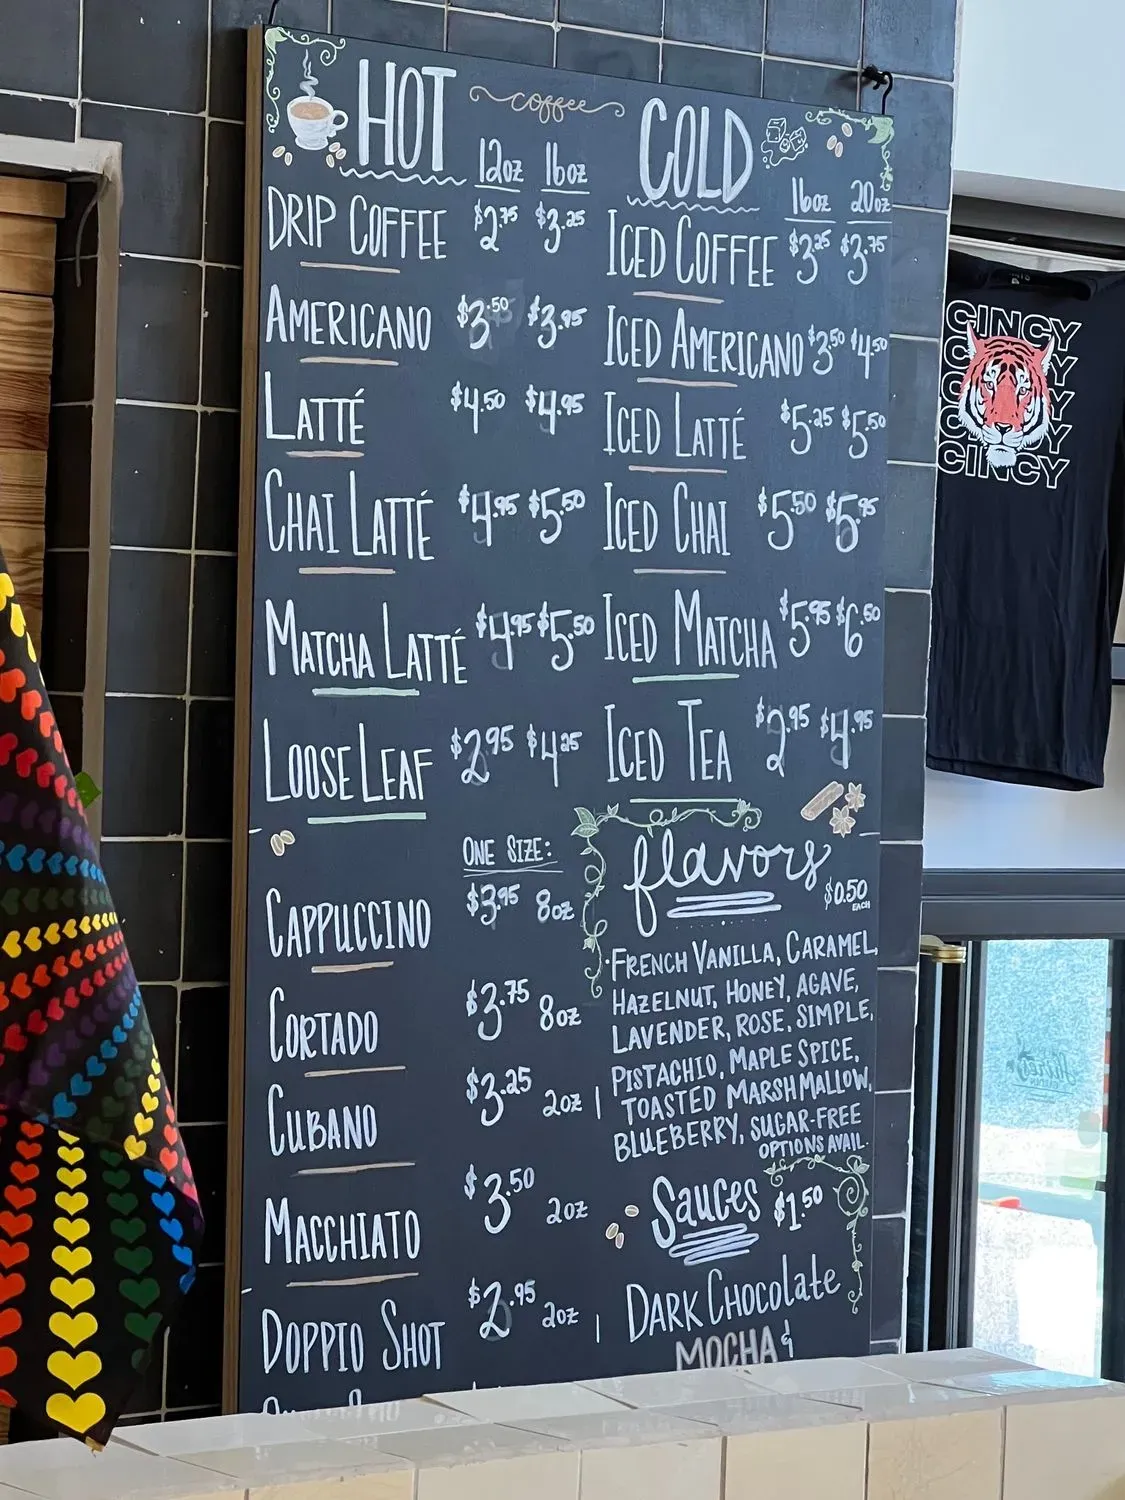 coffee
HOT
12oz 16oz
DRIP COFFEE $2.75 $3.25
AMERICANO $3.50 $3.95
LATTÉ $4.50 $4.95
CHAI LATTÉ $4.95 $5.50
MATCHA LATTÉ $4.95 $5.50
LOOSE LEAF $2.95 $4.25
ONE SIZE:
CAPPUCCINO $3.95 8oz
CORTADO $3.75 8oz
CUBANO $3.25 2oz
MACCHIATO $3.50 2oz
DOPPIO SHOT $2.95 2oz
COLD
16oz 20oz
ICED COFFEE $3.25 $3.75
ICED AMERICANO $3.50 $4.50
ICED LATTÉ $5.25 $5.50
ICED CHAI $5.50 $5.95
ICED MATCHA $5.95 $6.50
ICED TEA $2.95 $4.95
flavors
$0.50
EACH
FRENCH VANILLA, CARAMEL,
HAZELNUT, HONEY, AGAVE,
LAVENDER, ROSE, SIMPLE,
PISTACHIO, MAPLE SPICE,
TOASTED MARSHMALLOW,
BLUEBERRY, SUGAR-FREE
OPTIONS AVAIL.
Sauces $1.50
DARK CHOCOLATE
MOCHA &
CINCY
CINCY